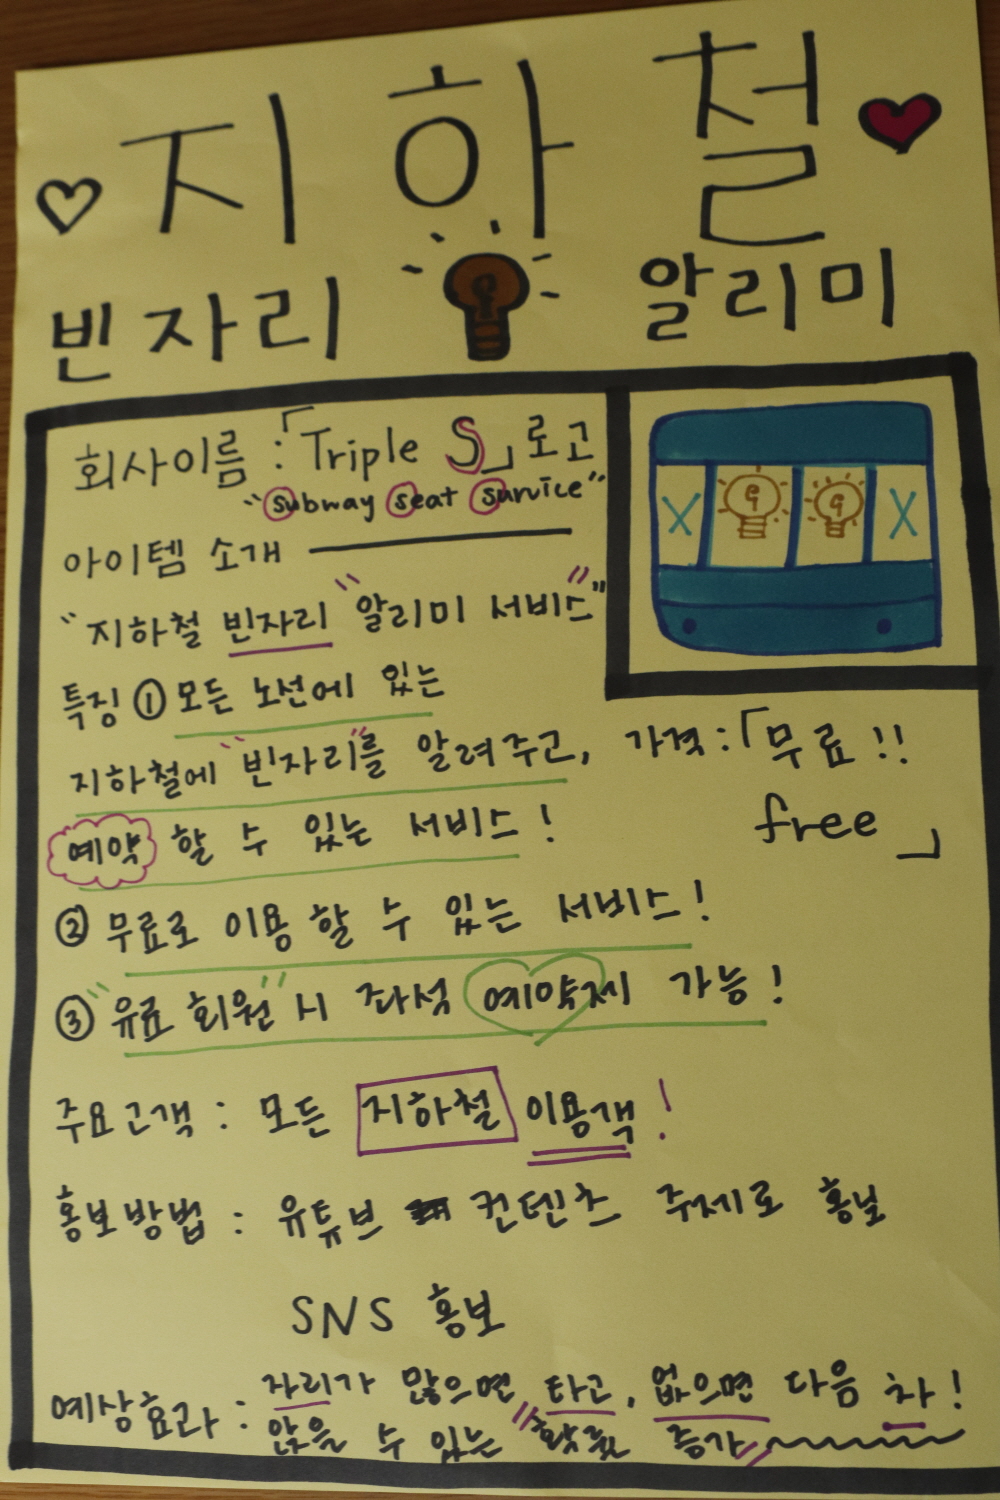 지하철
빈자리 알리미
회사이름 : 「Triple S」 로고
"subway seat survice"
아이템 소개
"지하철 빈자리 "알리미 서비스""
특징 ① 모든 노선에 있는
지하철에 "빈자리"를 알려주고,
예약 할 수 있는 서비스!
가격 : 「무료!!
free」
② 무료로 이용 할 수 있는 서비스!
③ "유료 회원"시 좌석 예약제 가능!
주요고객 : 모든 지하철 이용객!
홍보방법 : 유튜브 컨텐츠 주제로 홍보
SNS 홍보
예상효과 : 자리가 많으면 타고, 없으면 다음 차!
앉을 수 있는 "확률 증가"